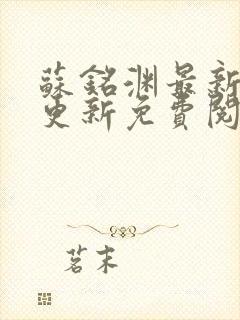 蘇銘淵最新
更新免費閱
茗末